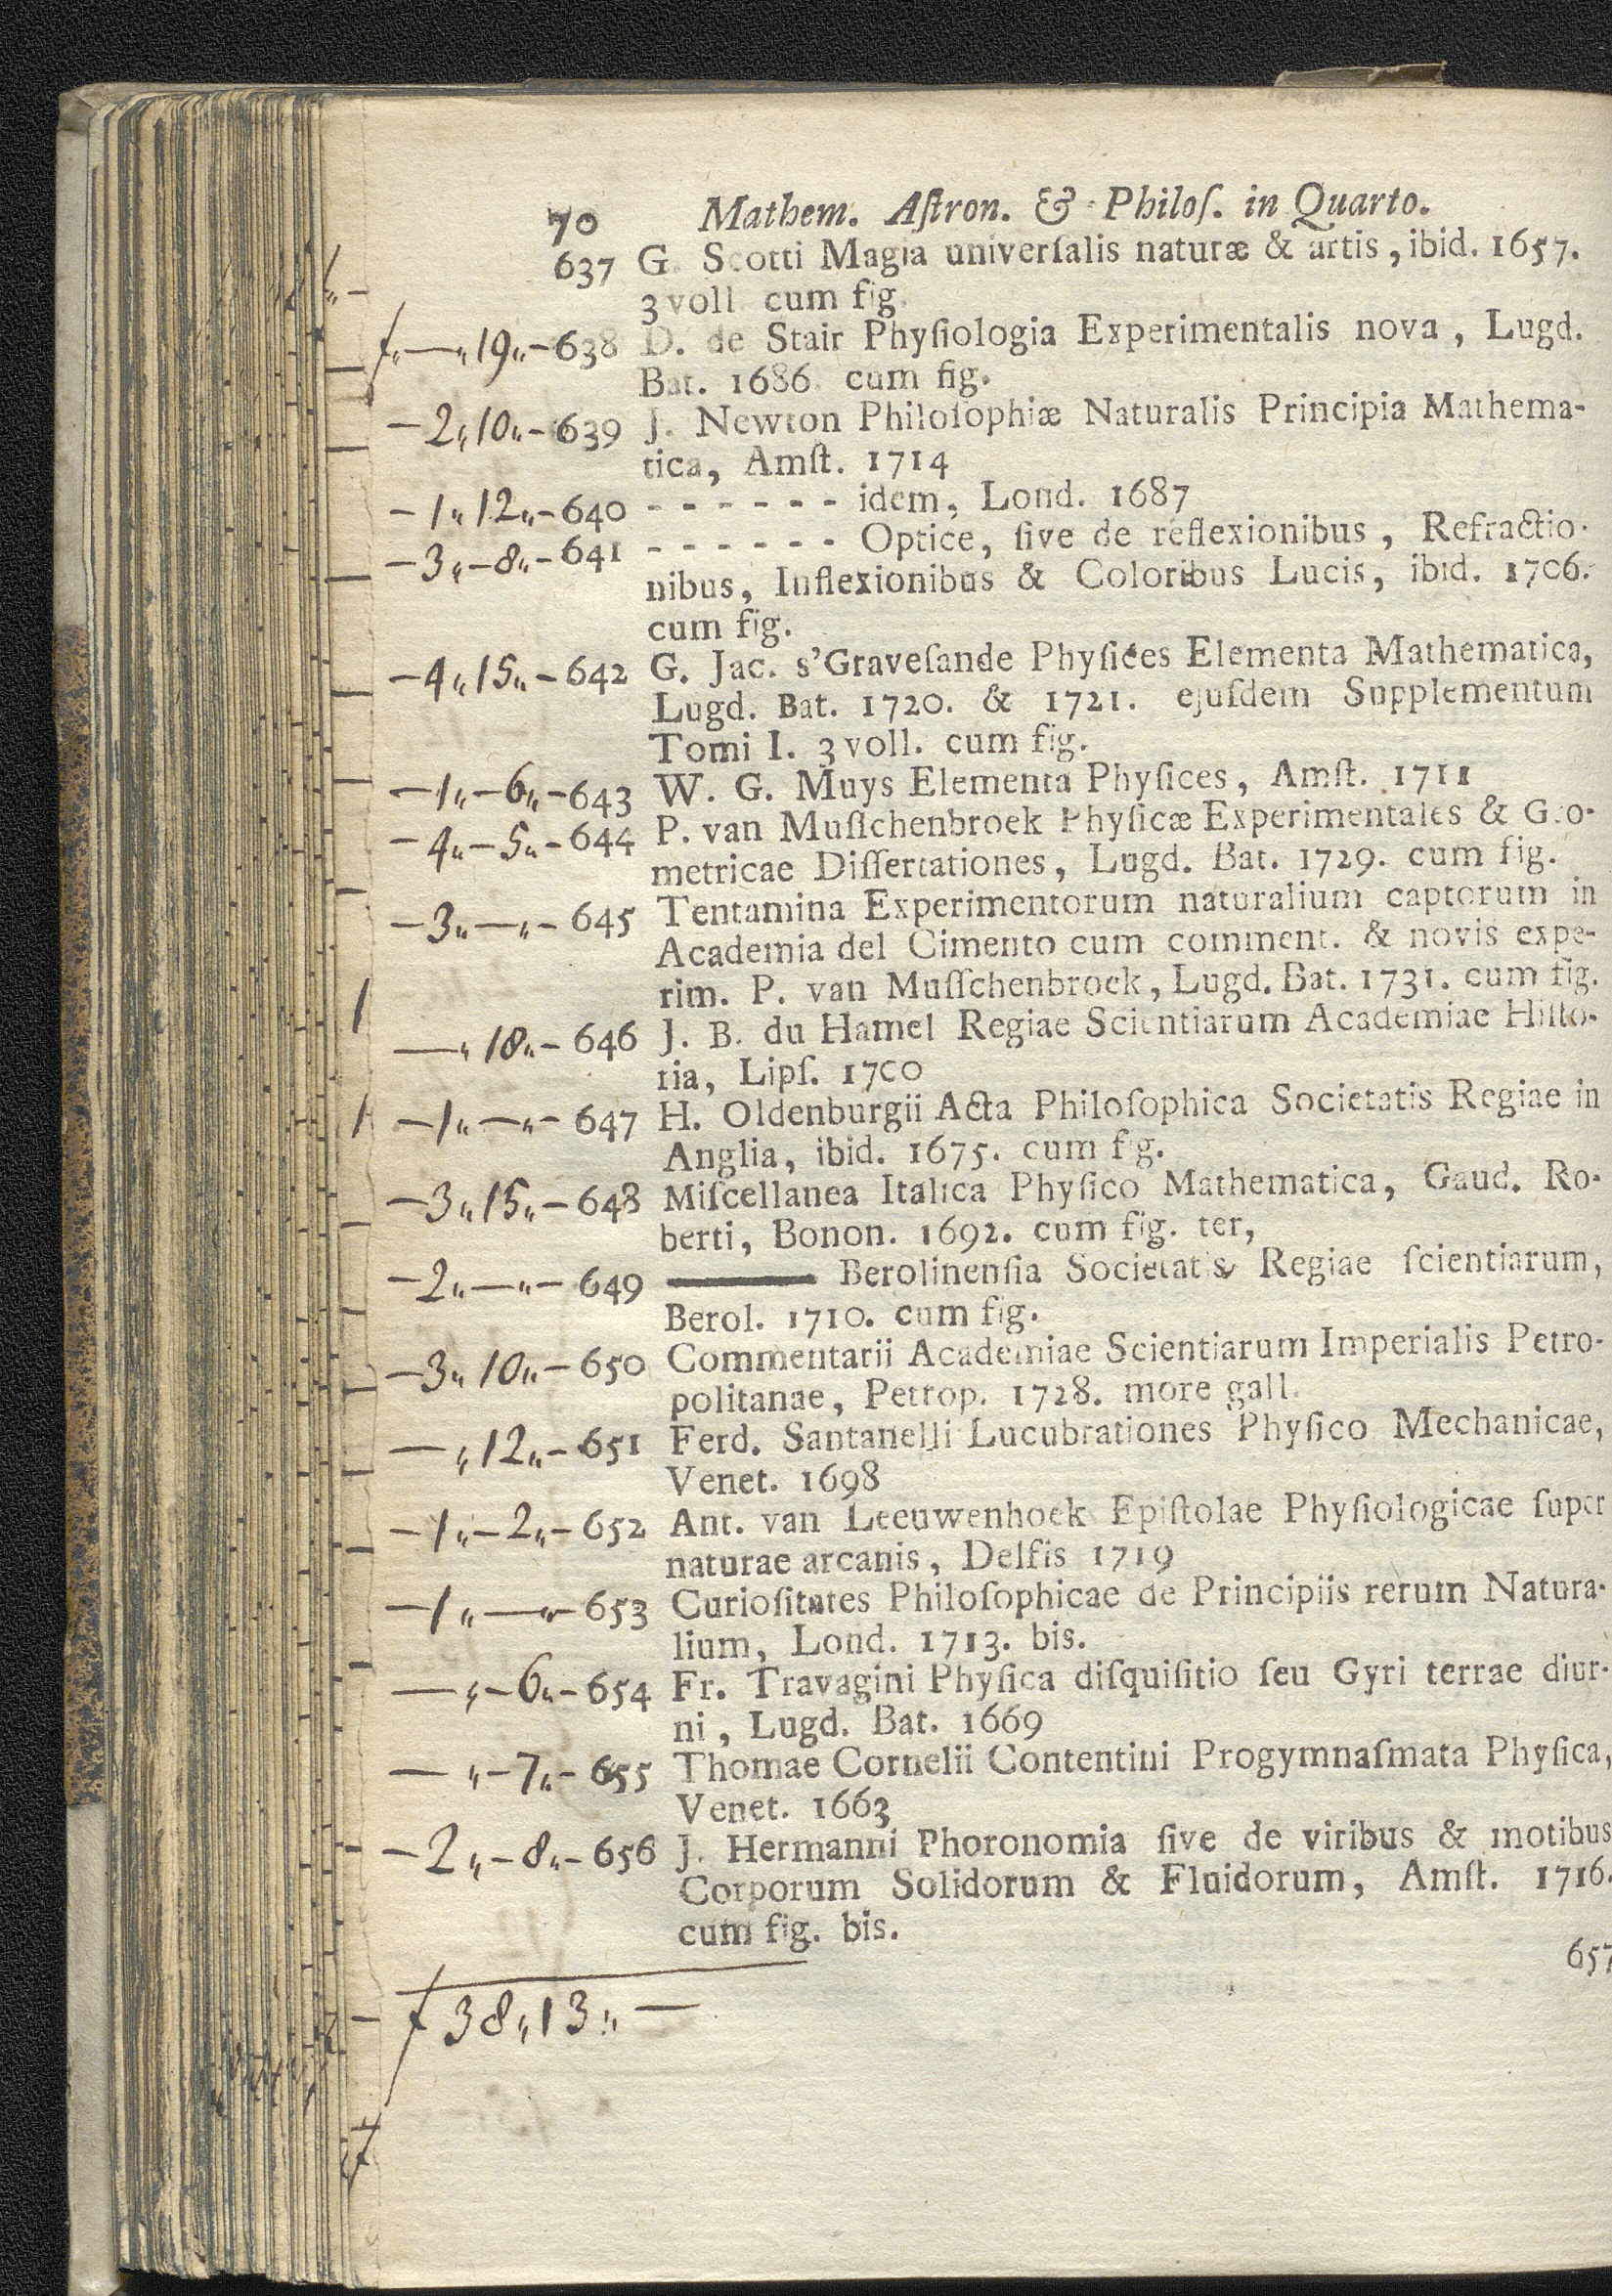 70 Mathem. Aſtron. & Philoſ. in Quarto.
637 G. Scotti Magia univerſalis naturæ & artis, ibid. 1657.
3 voll. cum fig.
f „—„ 19„— 638 D. de Stair Phyſiologia Experimentalis nova, Lugd.
Bat. 1686. cum fig.
—2„10„— 639 J. Newton Philoſophiæ Naturalis Principia Mathema-
tica, Amſt. 1714
—1„12„— 640 - - - - - - idem, Lond. 1687
—3„—8„— 641 - - - - - - Optice, ſive de reflexionibus, Refractio-
nibus, Inflexionibus & Coloribus Lucis, ibid. 1706.
cum fig.
—4„15„— 642 G. Jac. s'Graveſande Phyſices Elementa Mathematica,
Lugd. Bat. 1720. & 1721. ejuſdem Supplementum
Tomi I. 3 voll. cum fig.
—1„—6„— 643 W. G. Muys Elementa Phyſices, Amſt. 1711
—4„—5„— 644 P. van Muſſchenbroek Phyſicæ Experimentales & Geo-
metricae Diſſertationes, Lugd. Bat. 1729. cum fig.
—3„—„— 645 Tentamina Experimentorum naturalium captorum in
Academia del Cimento cum comment. & novis expe-
rim. P. van Muſſchenbroek, Lugd. Bat. 1731. cum fig.
—„18„— 646 J. B. du Hamel Regiae Scientiarum Academiae Hiſto-
ria, Lipſ. 1700
—1„—„— 647 H. Oldenburgii Acta Philoſophica Societatis Regiae in
Anglia, ibid. 1675. cum fig.
—3„15„— 648 Miſcellanea Italica Phyſico Mathematica, Gaud. Ro-
berti, Bonon. 1692. cum fig. ter,
—2„—„— 649 ——— Berolinenſia Societatis Regiae ſcientiarum,
Berol. 1710. cum fig.
—3„10„— 650 Commentarii Academiae Scientiarum Imperialis Petro-
politanae, Petrop. 1728. more gall.
—„12„— 651 Ferd. Santanelli Lucubrationes Phyſico Mechanicae,
Venet. 1698
—1„—2„— 652 Ant. van Leeuwenhoek Epiſtolae Phyſiologicae ſuper
naturae arcanis, Delfis 1719
—1„—„— 653 Curioſitates Philoſophicae de Principiis rerum Natura-
lium, Lond. 1713. bis.
—„—6„— 654 Fr. Travagini Phyſica diſquiſitio ſeu Gyri terrae diur-
ni, Lugd. Bat. 1669
—„—7„— 655 Thomae Cornelii Contentini Progymnaſmata Phyſica,
Venet. 1663
—2„—8„— 656 J. Hermanni Phoronomia ſive de viribus & motibus
Corporum Solidorum & Fluidorum, Amſt. 1716.
cum fig. bis.
657
f 38„13„—